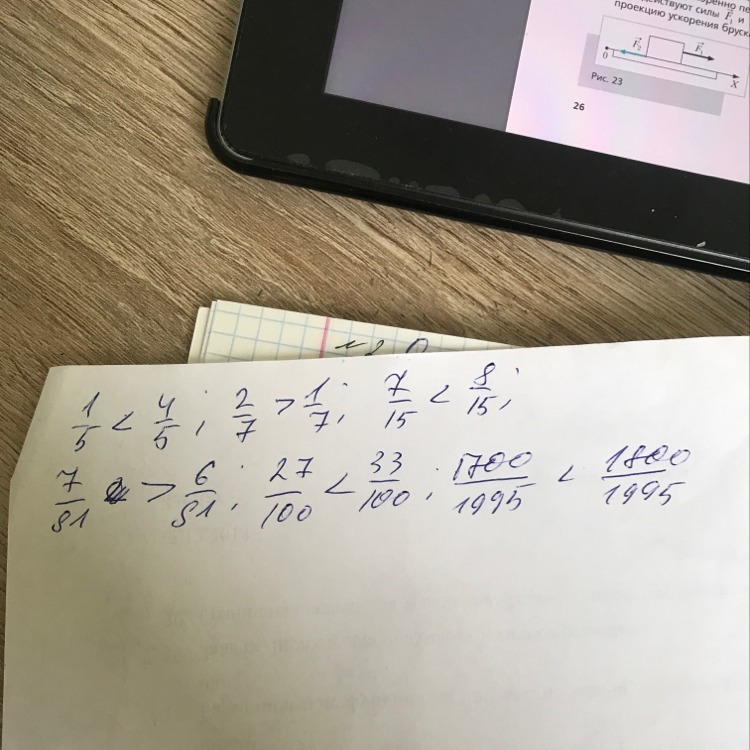 действуют силы F₁ и
проекцию ускорения бруска
F₂ F₁
0 X
Рис. 23
26
1/5 < 4/5; 2/7 > 1/7; 7/15 < 8/15;
7/81 > 6/81; 27/100 < 33/100; 1700/1995 < 1800/1995